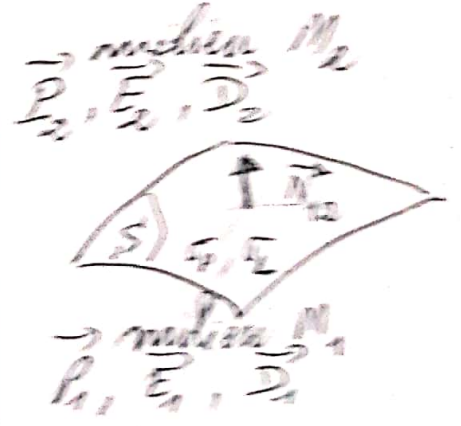 milieu M₂
P⃗₂, E⃗₂, D⃗₂
n⃗₁₂
S
milieu M₁
P⃗₁, E⃗₁, D⃗₁